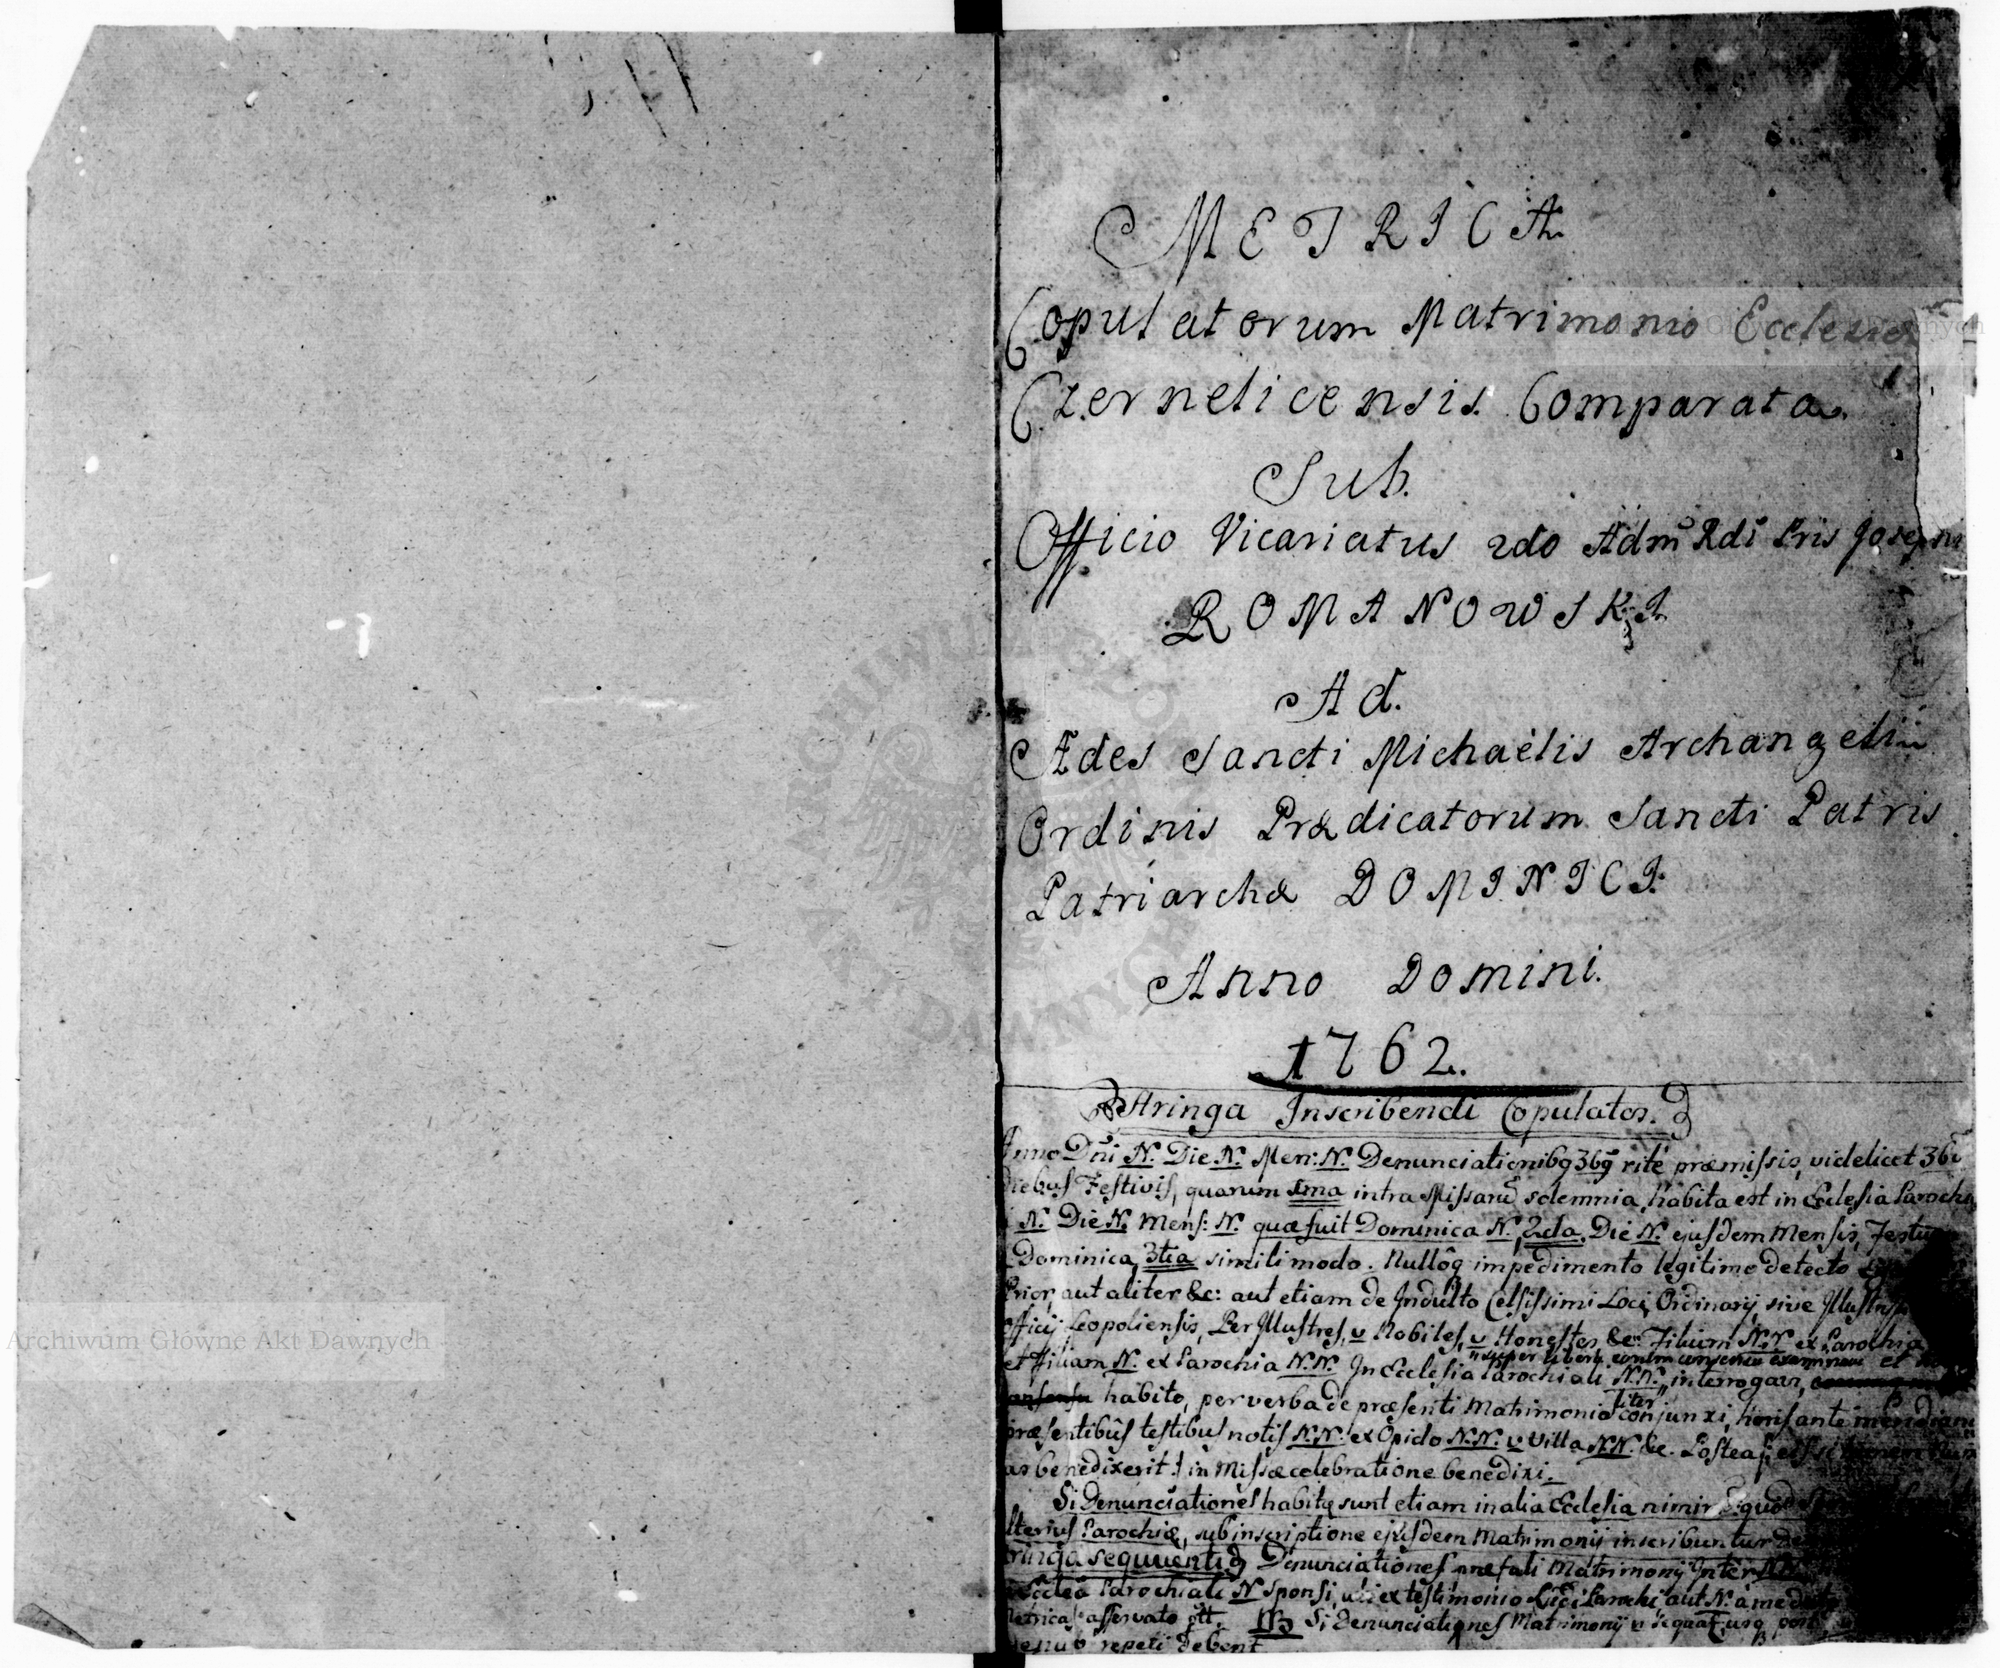 METRICA
Copulatorum Matrimonio Ecclesiæ
Czernelicensis Comparata.
Sub.
Officio Vicariatus 2do Adm Rdi Pris Josephi
ROMANOWSKI
Ad.
Ædes Sancti Michaëlis Archangeli
Ordinis Prædicatorum Sancti Patris
Patriarchæ DOMINICI.
Anno Domini.
1762.
Aringa Inscribendi Copulatos.
Anno Dni N. Die N. Men: N. Denunciationibq 3bq rité præmissis, videlicet 3bq
diebus Festivis, quarum 1ma intra Missaru solemnia, habita est in Ecclesia Parochia
N. Die N. Mens: N. quæ fuit Dominica N. 2da, Die N. ejusdem Mensis, Festu
Dominica, 3tia simili modo. Nullôq impedimento legitimo detecto
Prior, aut aliter &c: aut etiam de Indulto Celsissimi Loci Ordinarij sive Illustriss
officij Leopoliensis, Per Illustres, v Nobiles, v Honestos &c: Filium N.N. ex Parochia
super libero eorum consensu examinavi et
et Filiam N. ex Parochia N.N. In Ecclesia Parochiali N.N. interrogavi,
habito, per verba de præsenti Matrimonialiter conjunxi, horis ante meridiam
præsentibûs testibus notis N.N. ex Opido N.N. v Villa N.N. &c. Postea
benedixerit) in Missæ celebratione benedixi.
Si Denunciationes habitę sunt etiam in alia Ecclesia nimiru quod
alterius Parochiæ, sub inscriptione ejusdem Matrimonij inscribuntur
aringa sequenti Denunciationes præfati Matrimonij Inter
Ecclea Parochiali N Sponsi, uti ex testimonio Parochi aut N. a me
Metrica asservato ptt. NB Si Denunciationes Matrimonij
denuo repeti debent
Archiwum Główne Akt Dawnych
ARCHIWUM GŁÓWNE AKT DAWNYCH